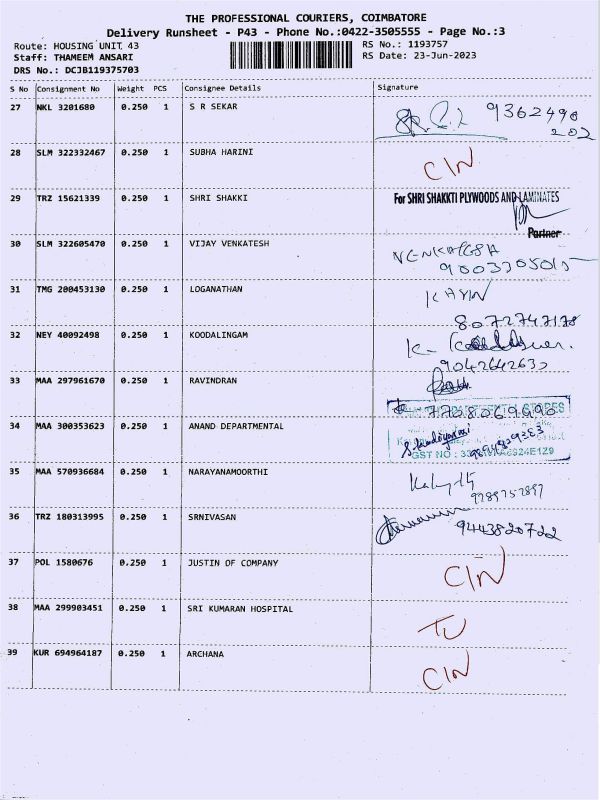 THE PROFESSIONAL COURIERS, COIMBATORE
Delivery Runsheet - P43 - Phone No.:0422-3505555 - Page No.:3
Route: HOUSING UNIT 43
RS No.: 1193757
Staff: THAMEEM ANSARI
RS Date: 23-Jun-2023
DRS No.: DCJB119375703
S No Consignment No Weight PCS Consignee Details Signature
27 NKL 3201680 0.250 1 S R SEKAR 9362490
202
28 SLM 322332467 0.250 1 SUBHA HARINI CIN
29 TRZ 15621339 0.250 1 SHRI SHAKKI For SHRI SHAKKTI PLYWOODS AND LAMINATES
Partner
30 SLM 322605470 0.250 1 VIJAY VENKATESH
31 TMG 200453130 0.250 1 LOGANATHAN
8072747178
32 NEY 40092498 0.250 1 KOODALINGAM K-
33 MAA 297961670 0.250 1 RAVINDRAN
34 MAA 300353623 0.250 1 ANAND DEPARTMENTAL
GST NO :
35 MAA 570936684 0.250 1 NARAYANAMOORTHI
9789757897
36 TRZ 180313995 0.250 1 SRNIVASAN 9443820722
37 POL 1580676 0.250 1 JUSTIN OF COMPANY CIN
38 MAA 299903451 0.250 1 SRI KUMARAN HOSPITAL TU
39 KUR 694964187 0.250 1 ARCHANA CIN